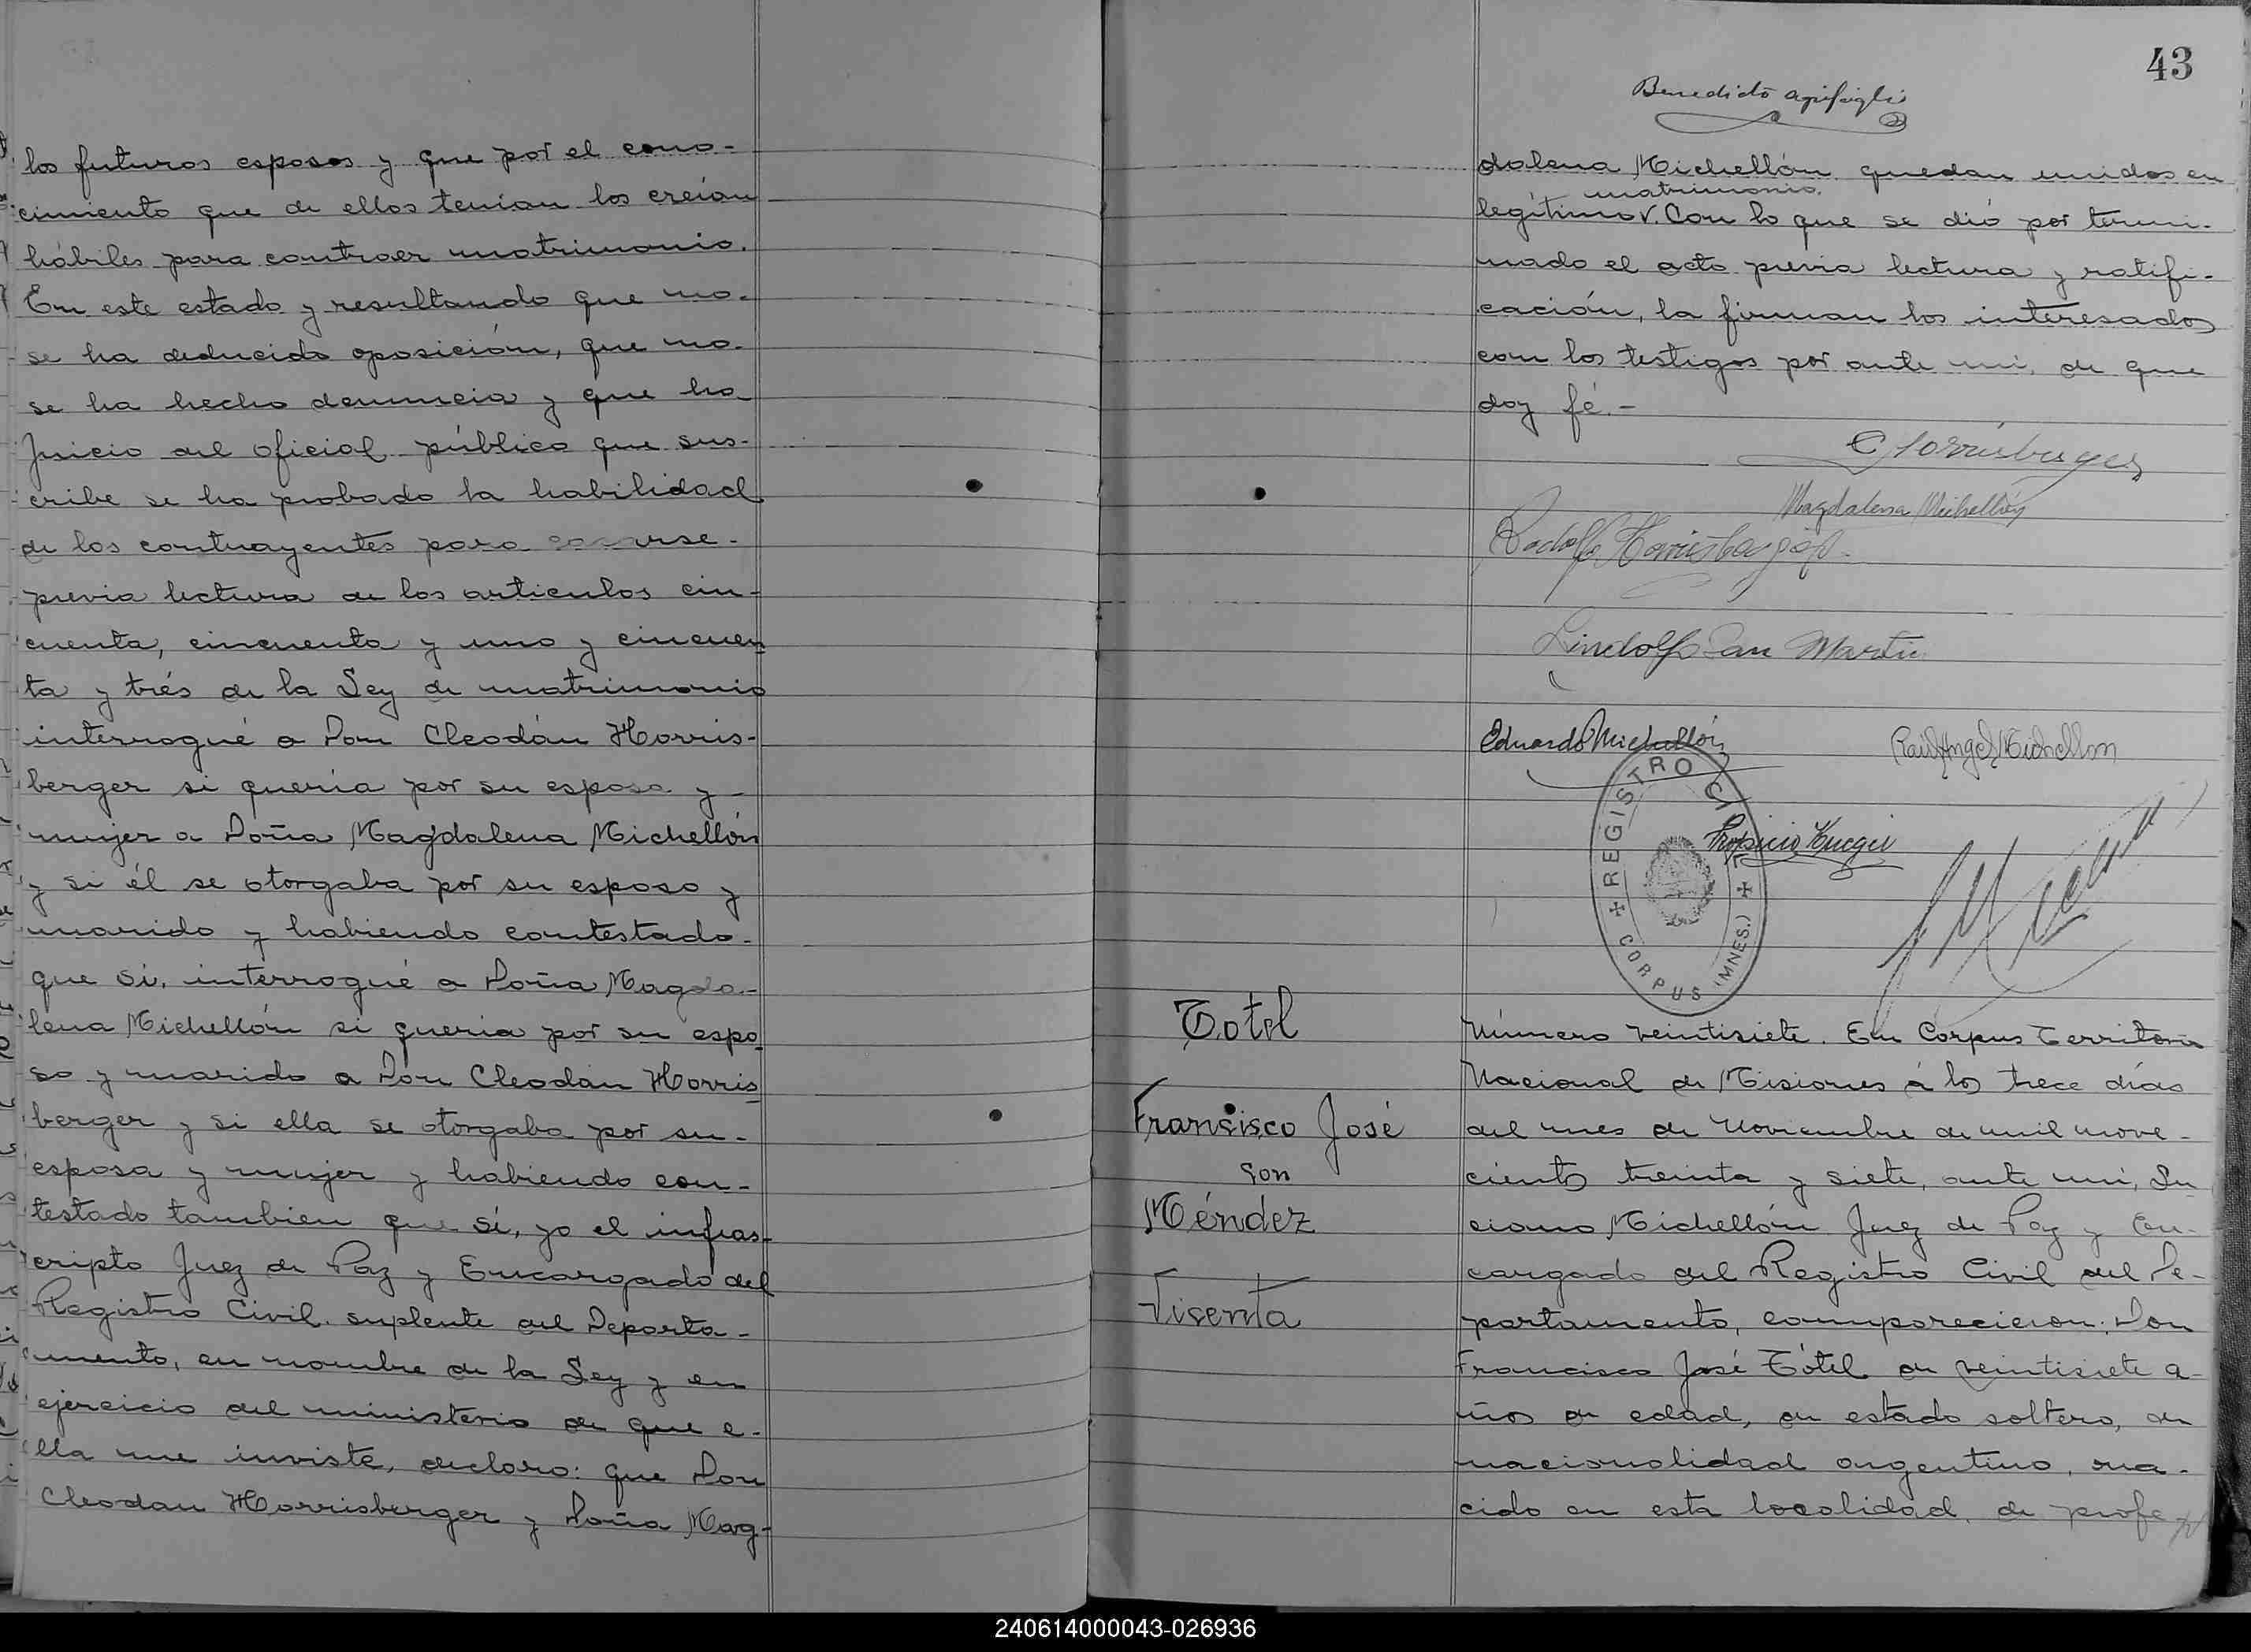 los futuros esposos y que por el cono-
cimiento que de ellos tenían los creían
hábiles para contraer matrimonio.
En este estado y resultando que no-
se ha deducido oposición, que no-
se ha hecho denuncia y que ha
Juicio del oficial público que sus-
cribe se ha probado la habilidad
de los contrayentes para casarse-
previa lectura de los articulos cin-
cuenta, cincuenta y uno y cincuen
ta y trés de la Ley de matrimonio
interrogué a Don Cleodán Horris-
berger si queria por su esposa y-
mujer a Doña Magdalena Michellón
y si él se otorgaba por su esposo y
marido y habiendo contestado-
que si, interrogué a Doña Magda-
lena Michellón si queria por su espo
so y marido a Don Cleodán Horris
berger y si ella se otorgaba por su-
esposa y mujer y habiendo con-
testado tambien que sí, yo el infras-
cripto Juez de Paz y Encargado del
Registro Civil suplente del Departa-
mento, en nombre de la Ley y en
ejercicio del ministerio de que e-
lla me inviste, declaro: que Don
Cleodan Horrisberger y Doña Mag-
43
Benedicto
dalena Michellón quedan unidos en
matrimonio.
legítimo v. Con lo que se dió por termi-
nado el acto previa lectura y ratifi-
cación, la firman los interesados
con los testigos por ante mi, de que
doy fé.-
C Horrisberger
Magdalena Michellón
Rodolfo Horrisberger
Lindolfo San Martin
Eduardo Michellón
Raul Angel Michellon
REGISTRO CI
CORPUS (MNES.)
Totel
Francisco José
con
Méndez
Visenta
Número veintisiete. En Corpus Territorio
Nacional de Misiones á los trece días
del mes de Noviembre de mil nove-
cientos treinta y siete, ante mi, Lu
ciano Michellón Juez de Paz y En-
cargado del Registro Civil del De-
partamento, comparecieron: Don
Francisco José Tótel de veintisiete a-
ños de edad, de estado soltero, de
nacionalidad argentino, na-
cido en esta localidad, de profe-
240614000043-026936